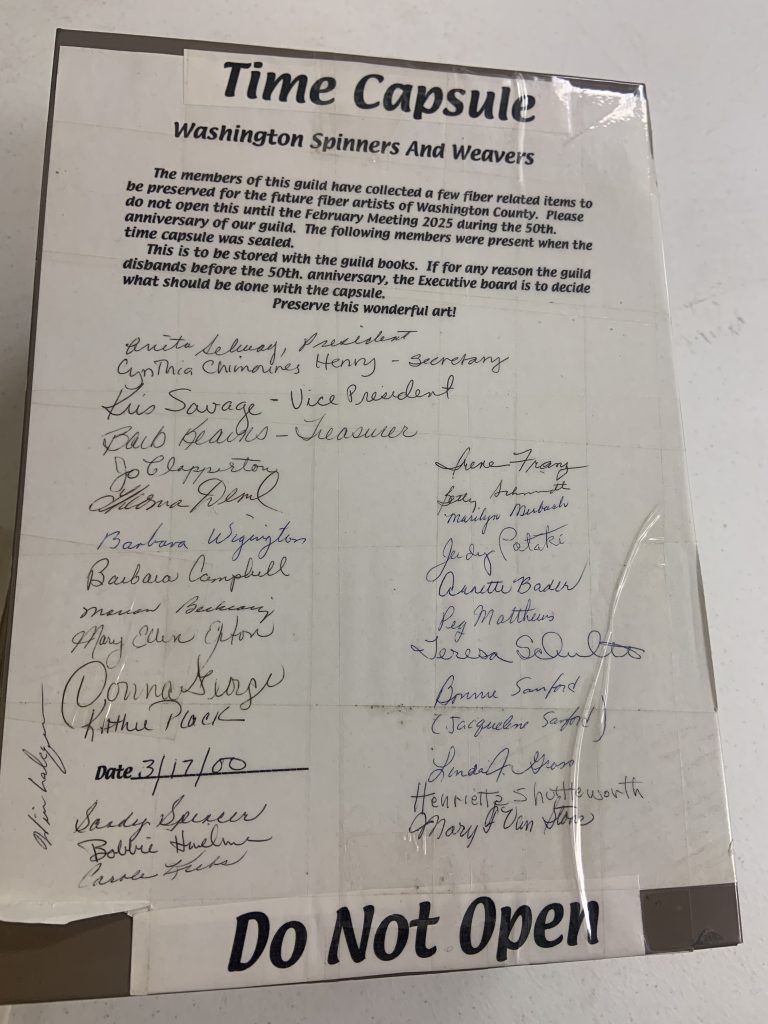 Time Capsule
Washington Spinners And Weavers
The members of this guild have collected a few fiber related items to
be preserved for the future fiber artists of Washington County. Please
do not open this until the February Meeting 2025 during the 50th.
anniversary of our guild. The following members were present when the
time capsule was sealed.
This is to be stored with the guild books. If for any reason the guild
disbands before the 50th. anniversary, the Executive board is to decide
what should be done with the capsule.
Preserve this wonderful art!
Anita Selway, President
Cynthia Chimorines Henry - Secretary
Kris Savage - Vice President
Barb Kearns - Treasurer
Jo Clapperton
Thelma Deml
Barbara Wigington
Barbara Campbell
Marion
Mary Ellen
Donna George
Kathie Plack
Irene Franz
Betty Schmidt
Marilyn
Judy Pataki
Annette Bader
Peg Matthews
Teresa Schultz
Bonnie Sanford
(Jacqueline Sanford).
Linda
Henrietta Shuttleworth
Mary
Date 3/17/00
Sandy Spencer
Bobbie
Carole
Do Not Open